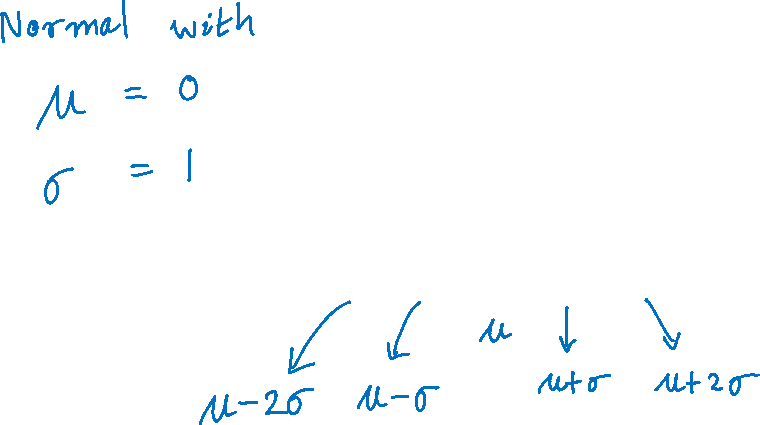 Normal with
μ = 0
σ = 1
μ
μ-2σ μ-σ μ+σ μ+2σ